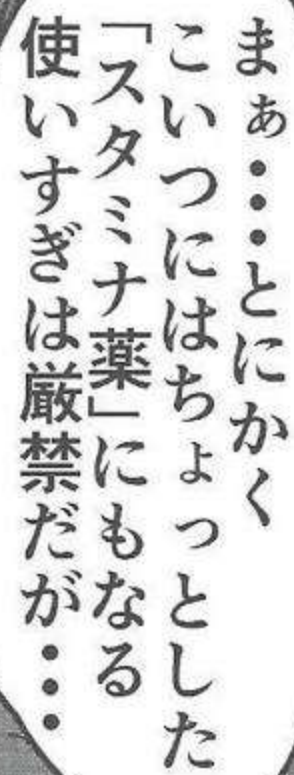 まぁ・・・とにかく
こいつにはちょっとした
「スタミナ薬」にもなる
使いすぎは厳禁だが・・・